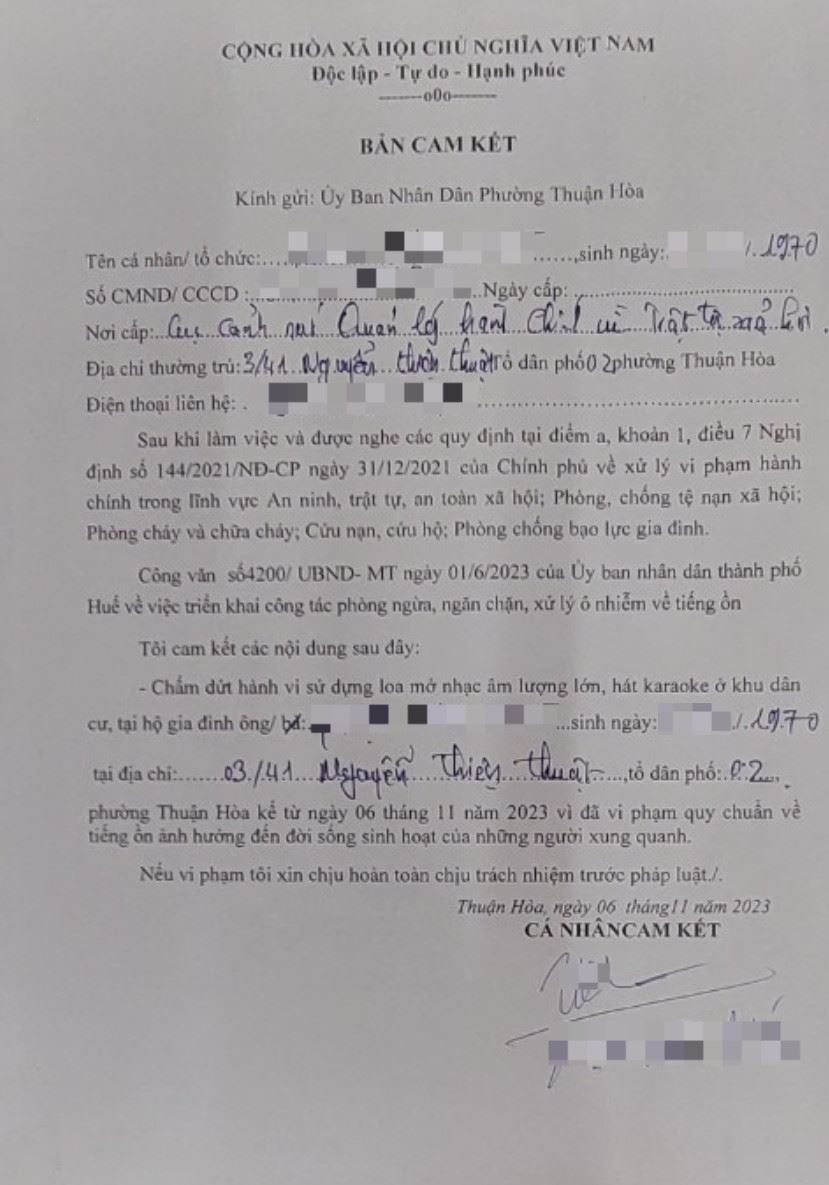 CỘNG HÒA XÃ HỘI CHỦ NGHĨA VIỆT NAM
Độc lập - Tự do - Hạnh phúc
-------o0o-------
BẢN CAM KẾT
Kính gửi: Ủy Ban Nhân Dân Phường Thuận Hòa
Tên cá nhân/ tổ chức:....  ......,sinh ngày:  /.1970
Số CMND/ CCCD :.  ...Ngày cấp: ........................................
Nơi cấp: Cục Cảnh sát Quản lý hành chính về Trật tự xã hội
Địa chỉ thường trú: 3/41 Nguyễn Thiện Thuật Tổ dân phố 02 phường Thuận Hòa
Điện thoại liên hệ: .  ...........................................................
Sau khi làm việc và được nghe các quy định tại điểm a, khoản 1, điều 7 Nghị
định số 144/2021/NĐ-CP ngày 31/12/2021 của Chính phủ về xử lý vi phạm hành
chính trong lĩnh vực An ninh, trật tự, an toàn xã hội; Phòng, chống tệ nạn xã hội;
Phòng cháy và chữa cháy; Cứu nạn, cứu hộ; Phòng chống bạo lực gia đình.
Công văn số4200/ UBND- MT ngày 01/6/2023 của Ủy ban nhân dân thành phố
Huế về việc triển khai công tác phòng ngừa, ngăn chặn, xử lý ô nhiễm về tiếng ồn
Tôi cam kết các nội dung sau đây:
- Chấm dứt hành vi sử dụng loa mở nhạc âm lượng lớn, hát karaoke ở khu dân
cư, tại hộ gia đình ông/ bà:  ...sinh ngày:  ./.1970
tại địa chỉ:.......03./41 Nguyễn Thiện Thuật...,tổ dân phố:.02...,
phường Thuận Hòa kể từ ngày 06 tháng 11 năm 2023 vì đã vi phạm quy chuẩn về
tiếng ồn ảnh hưởng đến đời sống sinh hoạt của những người xung quanh.
Nếu vi phạm tôi xin chịu hoàn toàn chịu trách nhiệm trước pháp luật./.
Thuận Hòa, ngày 06 tháng11 năm 2023
CÁ NHÂNCAM KẾT